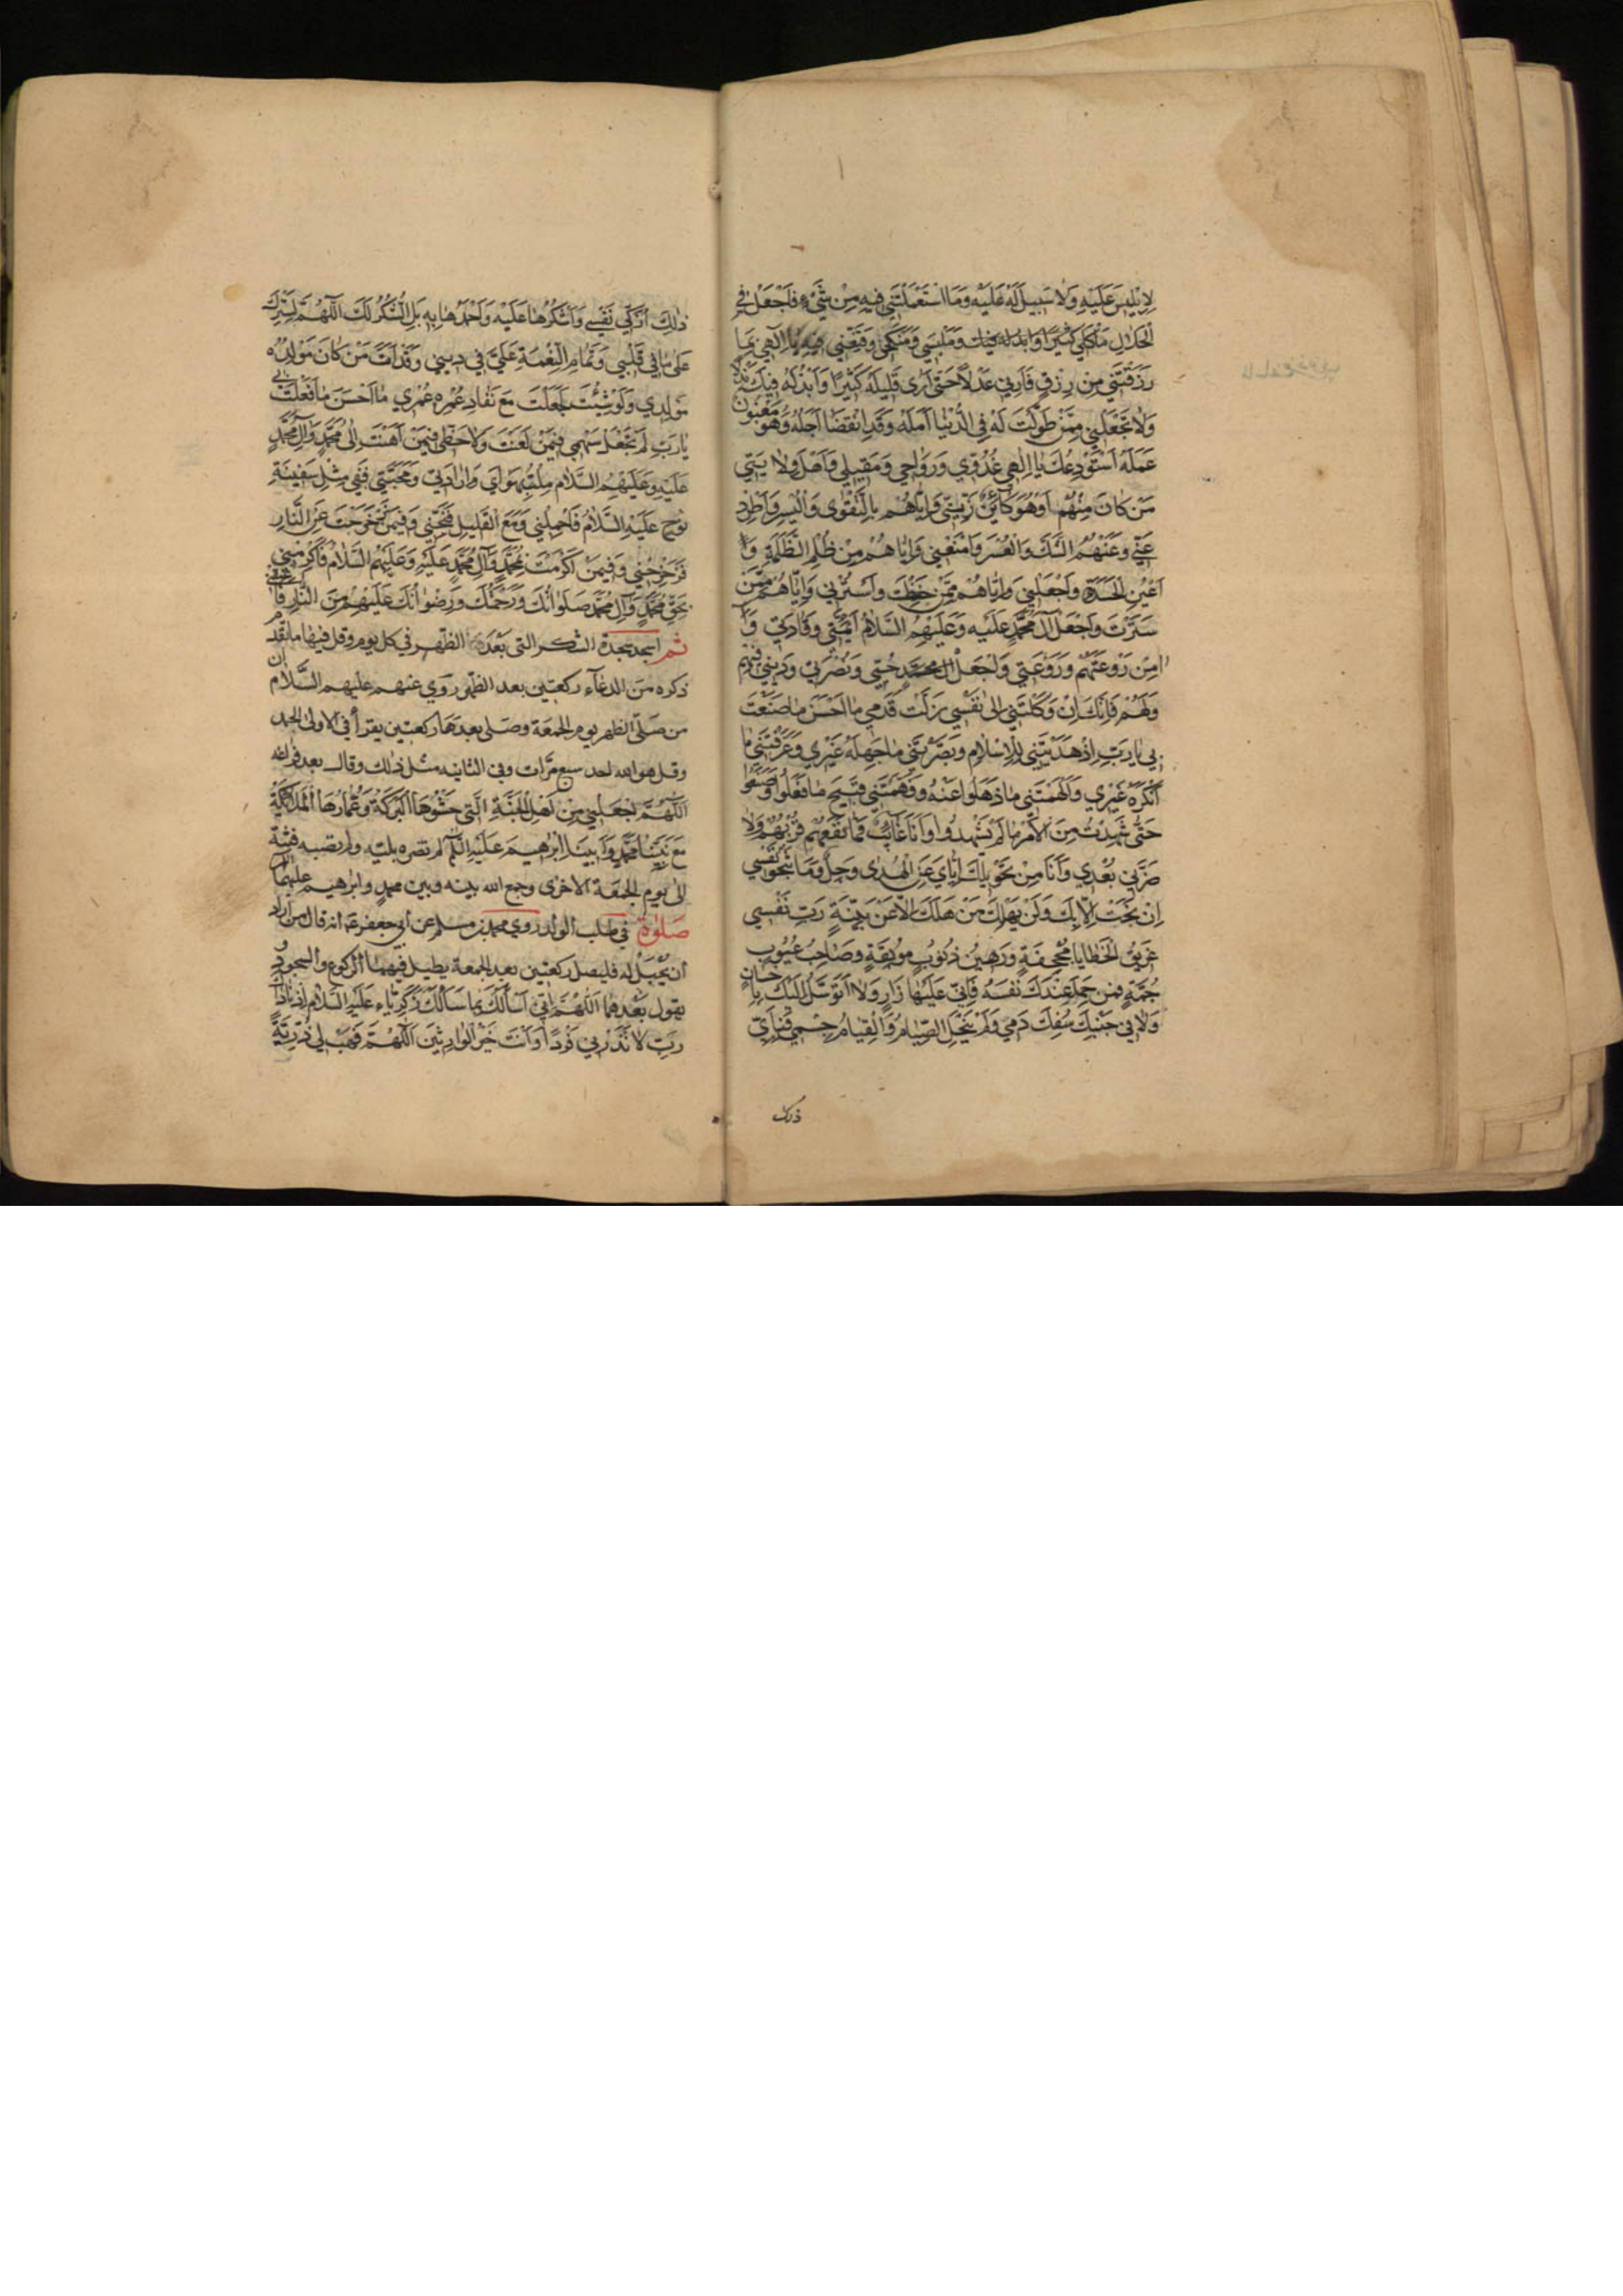 لِاِبْلِيسَ عَلَيْهِ وَلَا سَبِيلَ لَهُ عَلَيْهِ وَمَا اسْتَعْمَلْتَنِي فِيهِ مِنْ شَيْءٍ فَاجْعَلْ فِي
الْحَلَالِ مَأْكَلِي كَثِيرًا وَابْذُلْهُ فِيكَ وَمَلْبَسِي وَمَنْكَحِي وَقَنِّعْنِي فِيهِ يَا اِلٰهِي بِمَا
رَزَقْتَنِي مِنْ رِزْقٍ فَاَرِنِي عَدْلًا حَتّٰى اَرٰى قَلِيلَهُ كَثِيرًا وَاَبْذُلَهُ فِيكَ بَذْلًا
وَلَا تَجْعَلْنِي مِمَّنْ طَوَّلْتَ لَهُ فِي الدُّنْيَا اَمَلَهُ وَقَدِ انْقَضَا اَجَلُهُ وَهُوَ مَغْبُونٌ
عَمَلُهُ اَسْتَوْدِعُكَ يَا اِلٰهِي غُدُوِّي وَرَوَاحِي وَمَقِيلِي وَاَهْلَ وَلَايَتِي
مَنْ كَانَ مِنْهُمْ اَوْ هُوَ كَائِنٌ زَيِّنِّي وَاِيَّاهُمْ بِالتَّقْوٰى وَالْيُسْرِ وَاطْرُدْ
عَنِّي وَعَنْهُمُ الشَّكَّ وَالْعُسْرَ وَامْنَعْنِي وَاِيَّاهُمْ مِنْ ظُلْمِ الظَّلَمَةِ وَ
اَعْيُنِ الْحَسَدَةِ وَاجْعَلْنِي وَاِيَّاهُمْ مِمَّنْ حَفِظْتَ وَاسْتُرْنِي وَاِيَّاهُمْ مِمَّنْ
سَتَرْتَ وَاجْعَلْ آلَ مُحَمَّدٍ عَلَيْهِ وَعَلَيْهِمُ السَّلَامُ اَئِمَّتِي وَقَادَتِي وَ
اٰمِنْ رَوْعَتَهُمْ وَرَوْعَتِي وَاجْعَلْ حُبِّي وَنُصْرَتِي وَدِينِي فِيهِمْ
وَلَهُمْ فَاِنَّكَ اِنْ وَكَلْتَنِي اِلٰى نَفْسِي زَلَّتْ قَدَمِي مَا اَحْسَنَ مَا صَنَعْتَ
بِي يَا رَبِّ اِذْ هَدَيْتَنِي لِلْاِسْلَامِ وَبَصَّرْتَنِي مَا جَهِلَهُ غَيْرِي وَعَرَّفْتَنِي مَا
اَنْكَرَهُ غَيْرِي وَاَلْهَمْتَنِي مَا ذَهَلُوا عَنْهُ وَفَهَّمْتَنِي قَبِيحَ مَا فَعَلُوا وَصَنَعُوا
حَتّٰى شَهِدْتُ مِنَ الْاَمْرِ مَا لَمْ يَشْهَدُوا وَاَنَا غَائِبٌ فَمَا نَفَعَهُمْ قُرْبُهُمْ وَلَا
ضَرَّنِي بُعْدِي وَاَنَا مِنْ تَحْوِيلِكَ اِيَّايَ عَنِ الْهُدٰى وَجِلٌ وَمَا تَنْجُو نَفْسِي
اِنْ نَجَتْ اِلَّا بِكَ وَلَنْ يَهْلِكَ مَنْ هَلَكَ اِلَّا عَنْ بَيِّنَةٍ رَبِّ نَفْسِي
غَرِيقُ الْخَطَايَا مُجْحِفَةٍ وَرَهِينُ ذُنُوبٍ مُوبِقَةٍ وَصَاحِبُ عُيُوبٍ
جُمَّةٍ فَمَنْ حَمِدَ عِنْدَكَ نَفْسَهُ فَاِنِّي عَلَيْهَا زَارٍ وَلَا اَتَوَسَّلُ اِلَيْكَ بِاِحْسَانٍ
وَلَا فِي جَنْبِكَ سُفِكَ دَمِي وَلَمْ يُنْحِلِ الصِّيَامُ وَالْقِيَامُ جِسْمِي فَبِاَيِّ
ذلك
ذٰلِكَ اُزَكِّي نَفْسِي وَاَشْكُرُهَا عَلَيْهِ وَاَحْمَدُهَا بِهِ بَلِ الشُّكْرُ لَكَ اَللّٰهُمَّ لِسَتْرِكَ
عَلٰى مَا فِي قَلْبِي وَتَمَامِ النِّعْمَةِ عَلَيَّ فِي دِينِي وَقَدْ اَمَتَّ مَنْ كَانَ مَوْلِدُهُ
مَوْلِدِي وَلَوْ شِئْتَ لَجَعَلْتَ مَعَ نَفَادِ عُمْرِهِ عُمْرِي مَا اَحْسَنَ مَا فَعَلْتَ بِي
يَا رَبِّ لَمْ تَجْعَلْ سَهْمِي فِيمَنْ لَعَنْتَ وَلَا حَظِّي فِيمَنْ اَهَنْتَ اِلٰى مُحَمَّدٍ وَآلِ مُحَمَّدٍ
عَلَيْهِ وَعَلَيْهِمُ السَّلَامُ مِلْتُ بِهَوَايَ وَاِرَادَتِي وَمَحَبَّتِي فَفِي مِثْلِ سَفِينَةِ
نُوحٍ عَلَيْهِ السَّلَامُ فَاحْمِلْنِي وَمَعَ الْقَلِيلِ فَنَجِّنِي وَفِيمَنْ زَحْزَحْتَ عَنِ النَّارِ
فَزَحْزِحْنِي وَفِيمَنْ اَكْرَمْتَ بِمُحَمَّدٍ وَآلِ مُحَمَّدٍ عَلَيْهِ وَعَلَيْهِمُ السَّلَامُ فَاَكْرِمْنِي
بِحَقِّ مُحَمَّدٍ وَآلِ مُحَمَّدٍ صَلَوَاتُكَ وَرَحْمَتُكَ وَرِضْوَانُكَ عَلَيْهِمْ مِنَ النَّارِ فَاَعْتِقْنِي
ثم اسجد سجدة الشكر التي بعد الظهر في كل يوم وقل فيها ما تقدم
ذكره من الدعاء ركعتين بعد الظهر روي عنهم عليهم السلام ان
من صلى الظهر يوم الجمعة وصلى بعدها ركعتين يقرأ في الاولى الحمد
وقل هو الله احد سبع مرات وفي الثانيه مثل ذلك وقال بعد فراغه
اَللّٰهُمَّ اجْعَلْنِي مِنْ اَهْلِ الْجَنَّةِ الَّتِي حَشْوُهَا الْبَرَكَةُ وَعُمَّارُهَا الْمَلَائِكَةُ
مَعَ نَبِيِّنَا مُحَمَّدٍ وَاَبِينَا اِبْرٰهِيمَ عَلَيْهِ السَّلَامُ لم تضره بليه ولم تصبه فتنة
الى يوم الجمعة الاخرى وجمع الله بينه وبين محمد وابرهيم عليهما السلام
صَلٰوةٌ في طلب الولد روي محمد بن مسلم عن ابي جعفر ع انه قال من اراد
ان يحبل له فليصل ركعتين بعد الجمعة يطيل فيهما الركوع والسجود و
يقول بعدهما اَللّٰهُمَّ اِنِّي اَسْأَلُكَ بِمَا سَأَلَكَ زَكَرِيَّاءُ عَلَيْهِ السَّلَامُ اِذْ نَادَاكَ
رَبِّ لَا تَذَرْنِي فَرْدًا وَاَنْتَ خَيْرُ الْوَارِثِينَ اَللّٰهُمَّ فَهَبْ لِي ذُرِّيَّةً